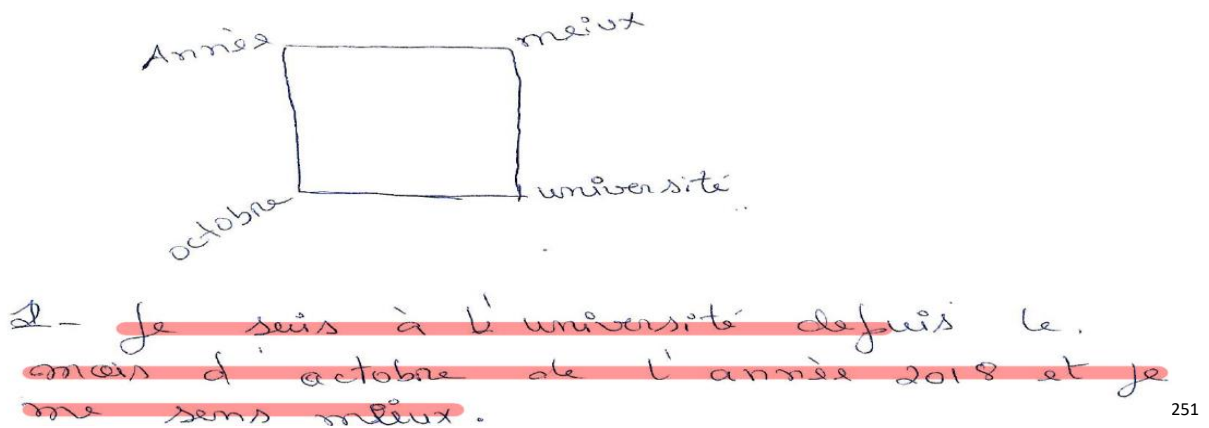 Année meiux
octobre université
2- Je suis à l'université depuis le.
mois d'octobre de l'année 2018 et je
me sens mieux.
251